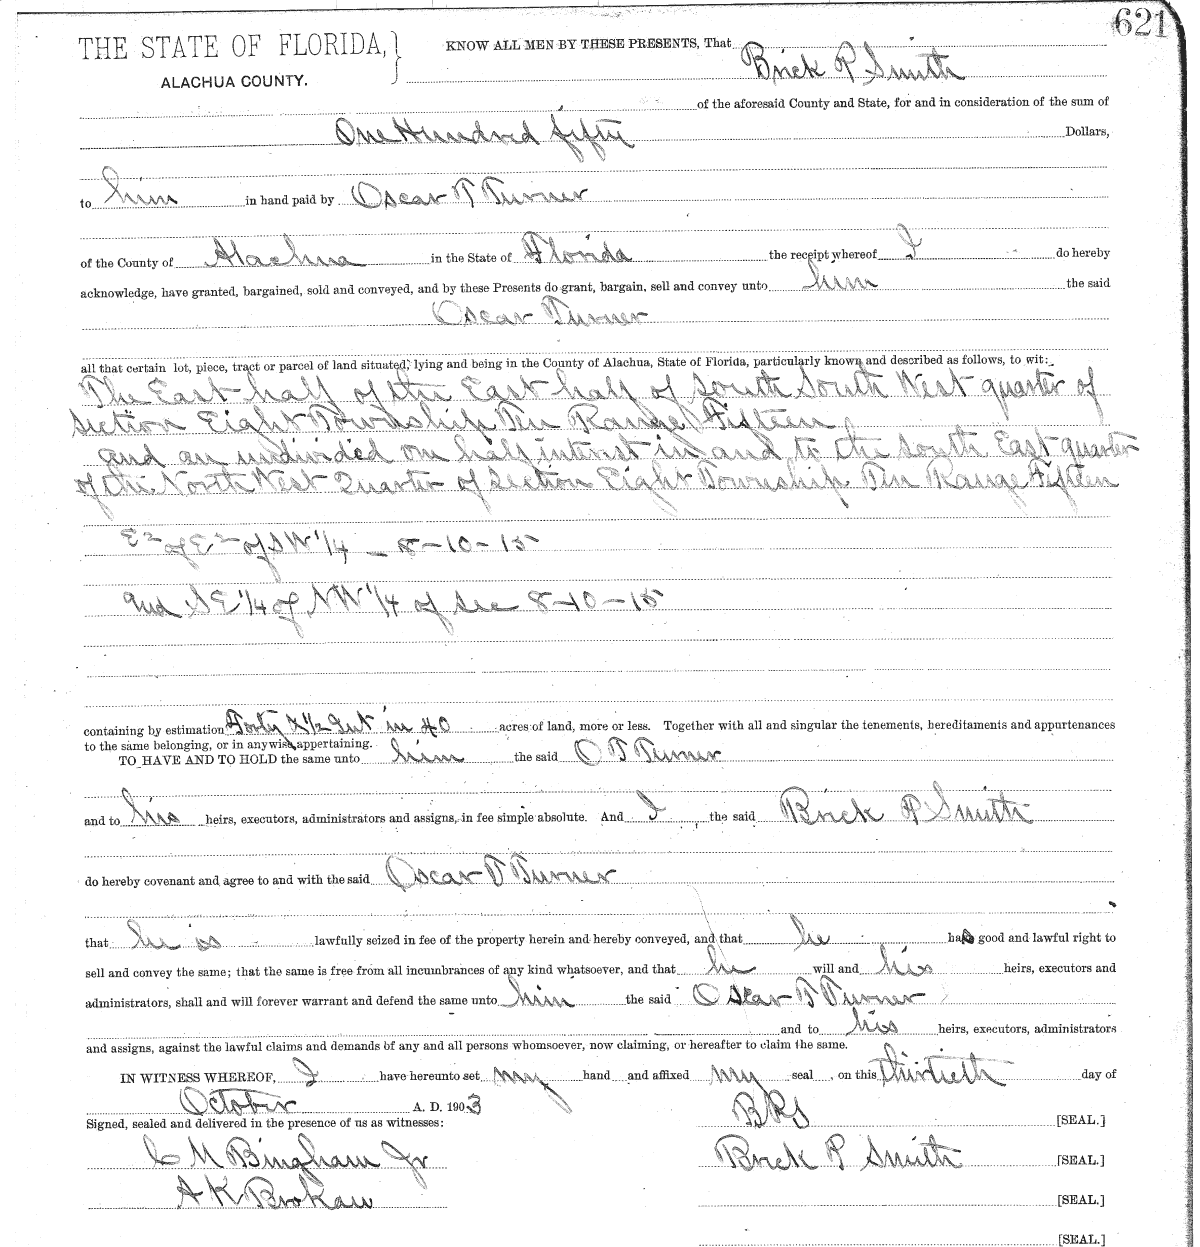 621
THE STATE OF FLORIDA,
ALACHUA COUNTY.
KNOW ALL MEN BY THESE PRESENTS, That
Brick P Smith
of the aforesaid County and State, for and in consideration of the sum of
One Hundred fifty Dollars,
to him in hand paid by Oscar T Turner
of the County of Alachua in the State of Florida the receipt whereof I do hereby
acknowledge, have granted, bargained, sold and conveyed, and by these Presents do grant, bargain, sell and convey unto him the said
Oscar Turner
all that certain lot, piece, tract or parcel of land situated, lying and being in the County of Alachua, State of Florida, particularly known and described as follows, to wit:
The East half of the East half of South South West quarter of
Section Eight Township Ten Range Fifteen
and an undivided on half interest in and to the South East quarter
of the North West Quarter of Section Eight Township Ten Range Fifteen
E 2 of E 2 of SW 1/4 - 8-10-15
and SE 1/4 of NW 1/4 of Sec 8-10-15
containing by estimation Forty & 1/2 Int in 40 acres of land, more or less. Together with all and singular the tenements, hereditaments and appurtenances
to the same belonging, or in anywise appertaining.
TO HAVE AND TO HOLD the same unto him the said O T Turner
and to his heirs, executors, administrators and assigns, in fee simple absolute. And I the said Brick P Smith
do hereby covenant and agree to and with the said Oscar T Turner
that he is lawfully seized in fee of the property herein and hereby conveyed, and that he has good and lawful right to
sell and convey the same; that the same is free from all incumbrances of any kind whatsoever, and that he will and his heirs, executors and
administrators, shall and will forever warrant and defend the same unto him the said Oscar T Turner
and to his heirs, executors, administrators
and assigns, against the lawful claims and demands of any and all persons whomsoever, now claiming, or hereafter to claim the same.
IN WITNESS WHEREOF, I have hereunto set my hand and affixed my seal , on this thirtieth day of
October A. D. 1903
Signed, sealed and delivered in the presence of us as witnesses:
BPS [SEAL.]
C M Bingham Jr
Brick P Smith [SEAL.]
A K Brokaw
[SEAL.]
[SEAL.]